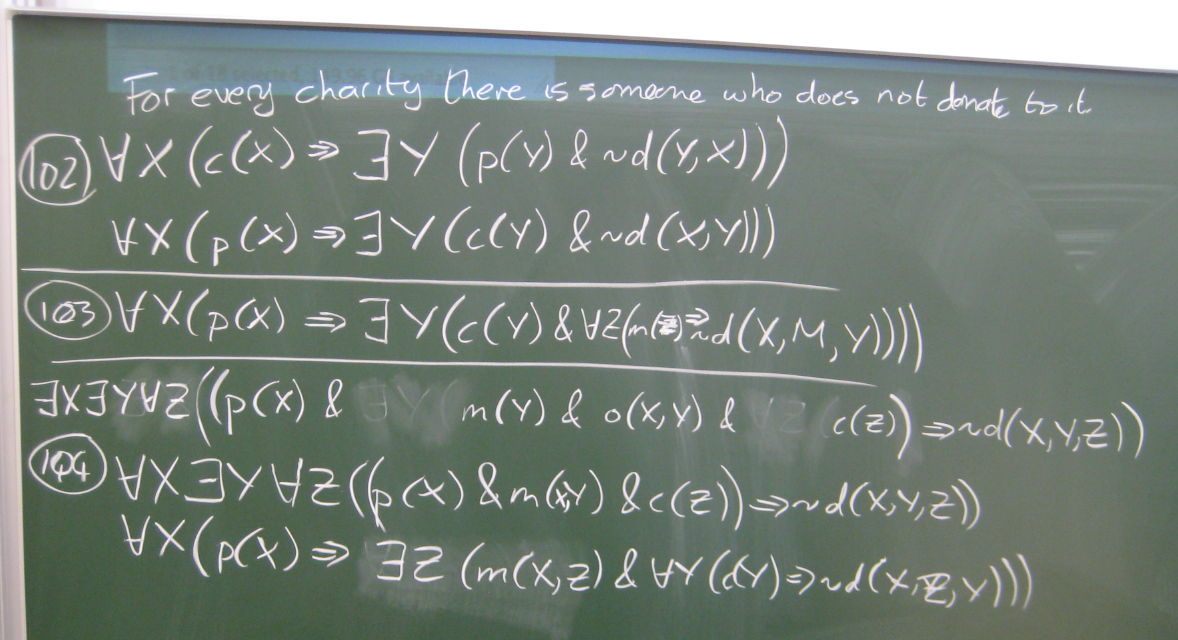 For every charity there is someone who does not donate to it.
102 ∀X(c(X) ⇒ ∃Y(p(Y) & ~d(Y,X)))
∀X(p(X) ⇒ ∃Y(c(Y) & ~d(X,Y)))
103 ∀X(p(X) ⇒ ∃Y(c(Y) & ∀Z(m(Z) ⇒ ~d(X,M,Y))))
∃X∃Y∀Z((p(X) & m(Y) & o(X,Y) & c(Z)) ⇒ ~d(X,Y,Z))
104 ∀X∃Y∀Z((p(X) & m(X,Y) & c(Z)) ⇒ ~d(X,Y,Z))
∀X(p(X) ⇒ ∃Z(m(X,Z) & ∀Y(c(Y) ⇒ ~d(X,Z,Y)))